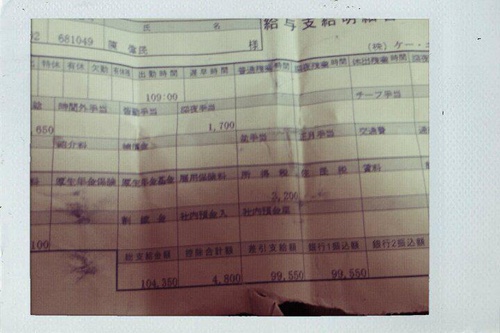 給与支給明細
氏 名
681049 陳 様
(株) ケー
特休 有休 欠勤 出勤時間 遅早時間 普通残業時間 深夜残業時間 休出残業時間
109:00
時間外手当 皆勤手当 深夜手当 チーフ手当
650 1,700
紹介料 補填金 正月手当 交通費
厚生年金保険 厚生年金基金 雇用保険料 所得税 住民税 賃料
3,200
制裁金 社内預金入 社内預金戻
100
総支給金額 控除合計額 差引支給額 銀行1振込額 銀行2振込額
104,350 4,800 99,550 99,550